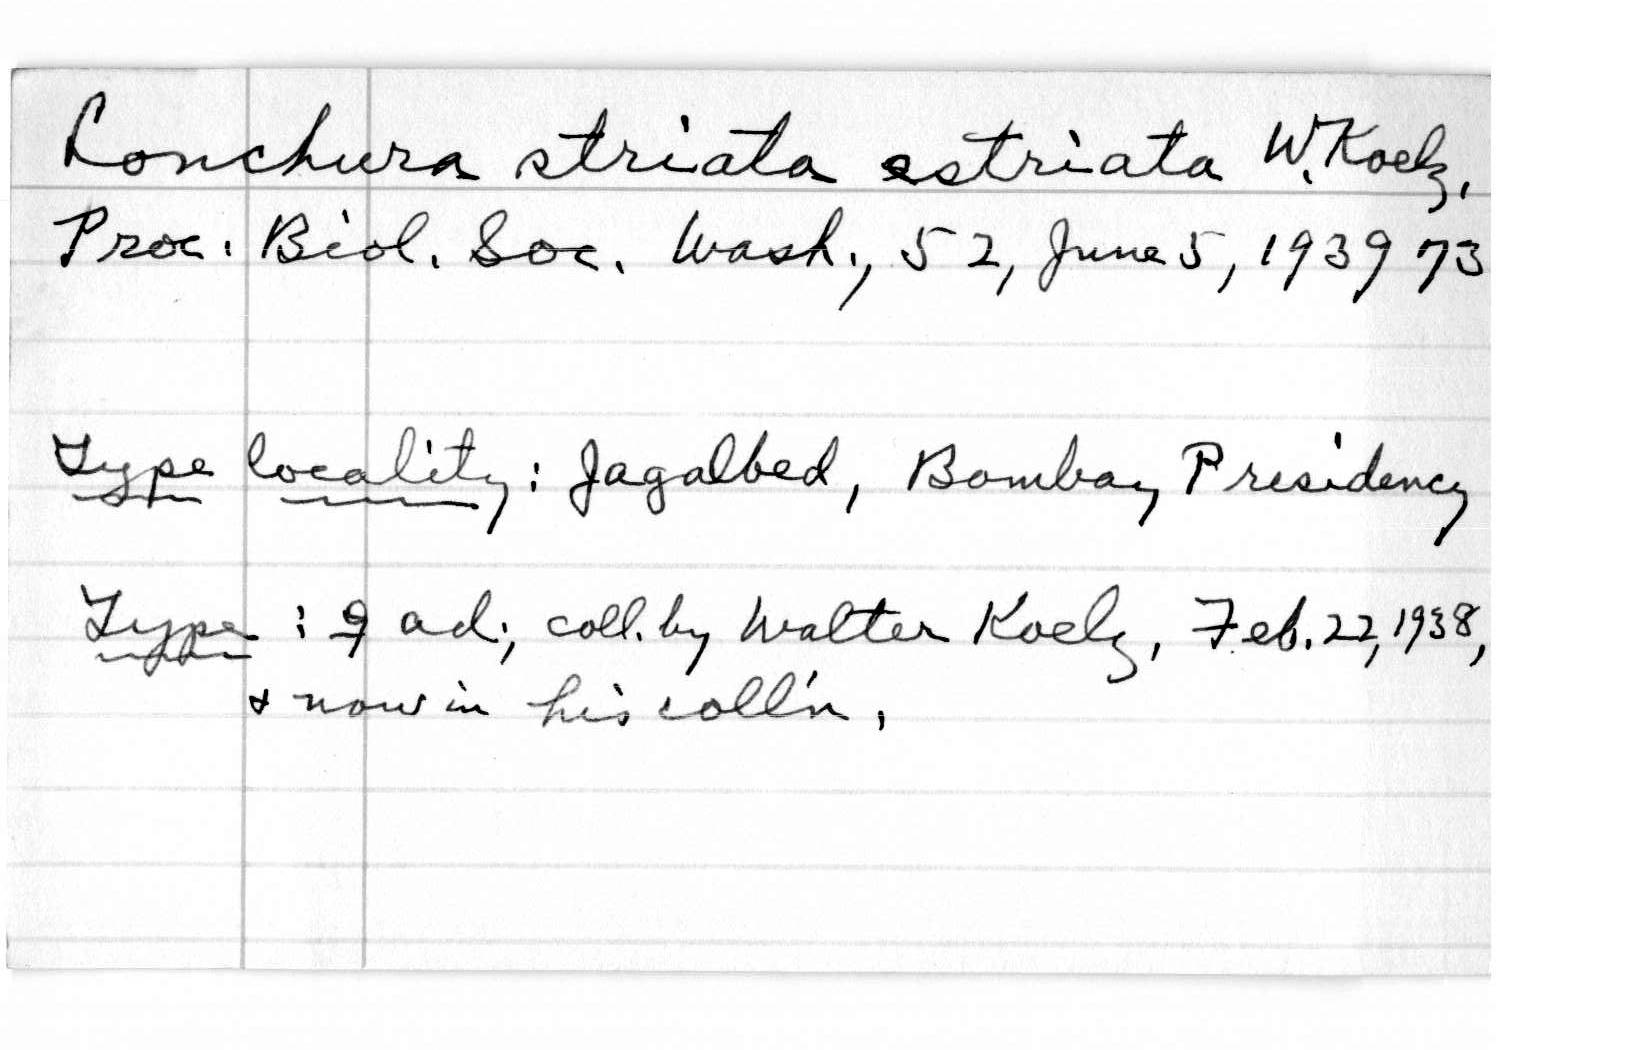 Lonchura striata estriata W. Koelz,
Proc. Biol. Soc. Wash., 52, June 5, 1939 73
Type locality: Jagalbed, Bombay Presidency
Type: ♀ ad; coll. by Walter Koelz, Feb. 22, 1938,
& now in his coll'n.